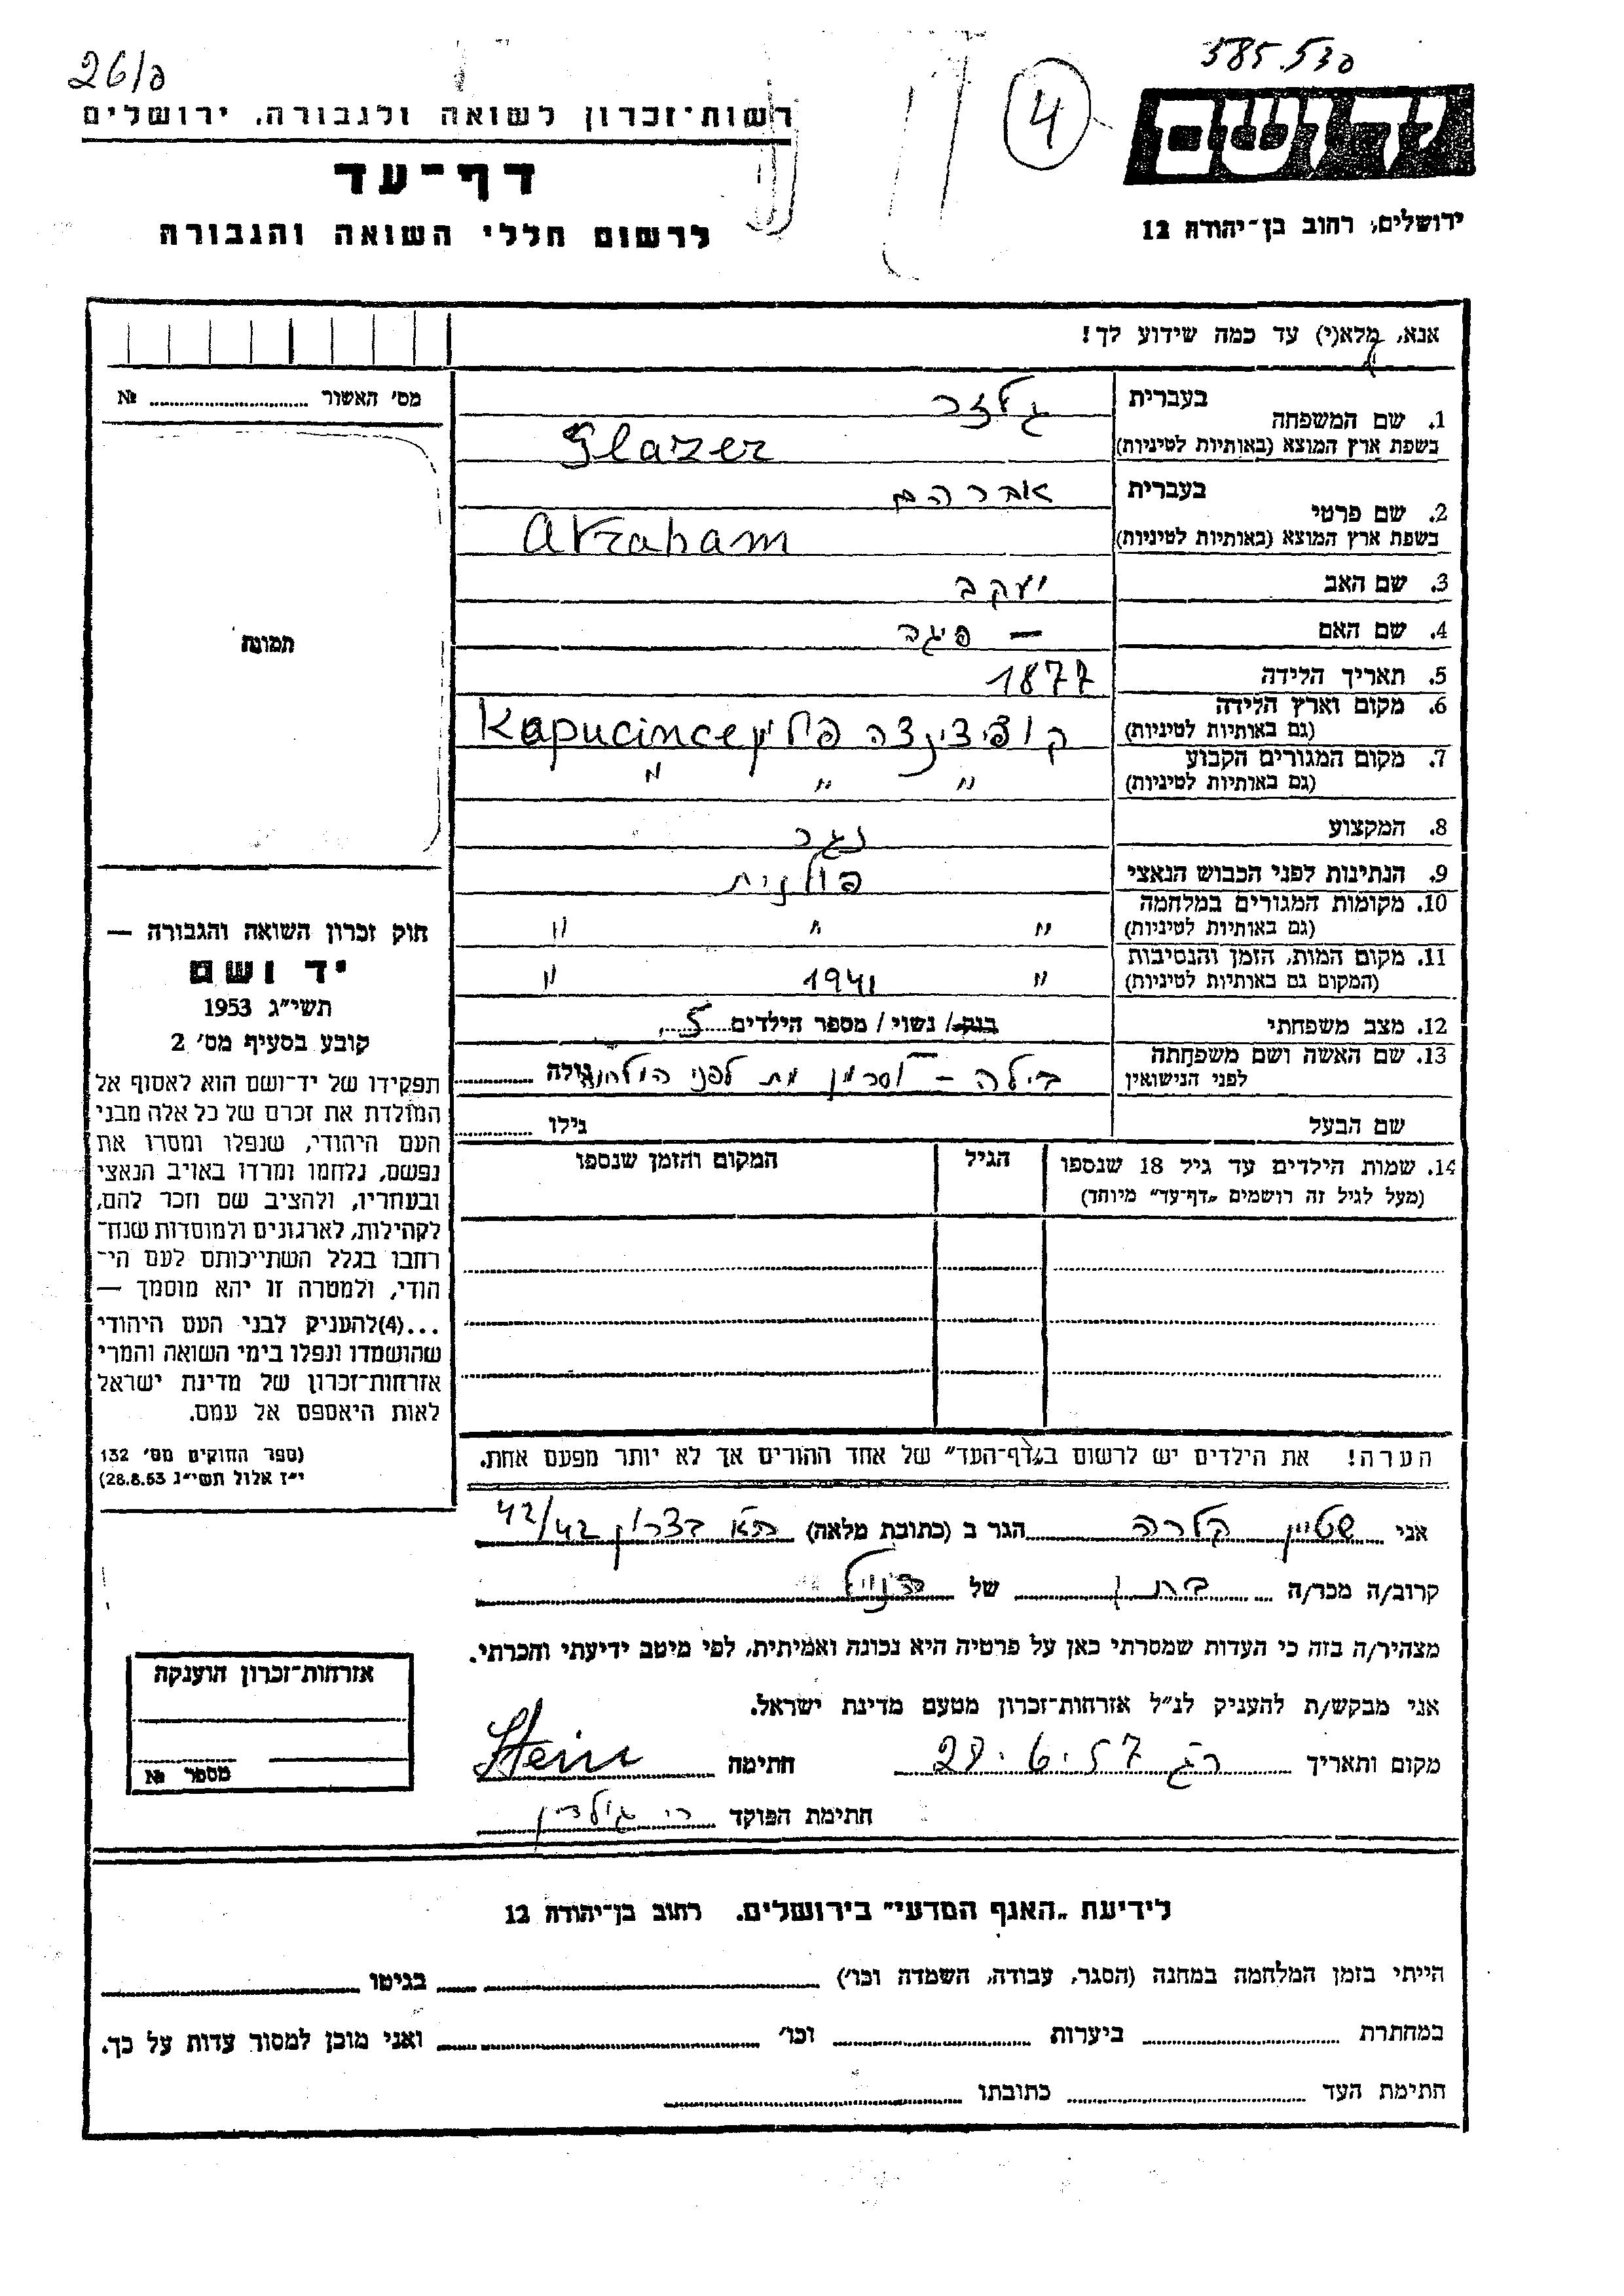 26/פ
585.530
4
רשות־זכרון לשואה ולגבורה, ירושלים
יד ושם
דף־עד
לרשום חללי השואה והגבורה
ירושלים, רחוב בן־יהודה 12
אנא, מלא(י) עד כמה שידוע לך!
מס' האשור № 
1. שם המשפחה
בעברית גלזר
בשפת ארץ המוצא (באותיות לטיניות) Glazer
2. שם פרטי
בעברית אברהם
בשפת ארץ המוצא (באותיות לטיניות) Avraham
3. שם האב יעקב
4. שם האם —
5. תאריך הלידה 1877
6. מקום וארץ הלידה (גם באותיות לטיניות) קופיצינצה פולין Kapucince
7. מקום המגורים הקבוע (גם באותיות לטיניות) " " "
8. המקצוע נגר
9. הנתינות לפני הכבוש הנאצי פולנית
10. מקומות המגורים במלחמה (גם באותיות לטיניות) " " "
11. מקום המות, הזמן והנסיבות (המקום גם באותיות לטיניות) " 1941 "
12. מצב משפחתי רווק / נשוי / מספר הילדים 5
13. שם האשה ושם משפחתה לפני הנישואין בילה – מת לפני המלחמה גילה
שם הבעל גילו
14. שמות הילדים עד גיל 18 שנספו
(מעל לגיל זה רושמים „דף־עד" מיוחד)
הגיל
המקום והזמן שנספו
תמונה
חוק זכרון השואה והגבורה —
יד ושם
תשי"ג 1953
קובע בסעיף מס' 2
תפקידו של יד־ושם הוא לאסוף אל
המולדת את זכרם של כל אלה מבני
העם היהודי, שנפלו ומסרו את
נפשם, נלחמו ומרדו באויב הנאצי
ובעוזריו, ולהציב שם וזכר להם,
לקהילות, לארגונים ולמוסדות שנח־
רבו בגלל השתייכותם לעם הי־
הודי, ולמטרה זו יהא מוסמך —
...(4)להעניק לבני העם היהודי
שהושמדו ונפלו בימי השואה והמרי
אזרחות־זכרון של מדינת ישראל
לאות היאספם אל עמם.
(ספר החוקים מס' 132
י"ז אלול תשי"ג 28.8.53)
הערה! את הילדים יש לרשום ב„דף־העד" של אחד ההורים אך לא יותר מפעם אחת.
אני שטיין קלרה הגר ב (כתובת מלאה) ת״א בצרון 42/42
קרוב/ה מכר/ה של
מצהיר/ה בזה כי העדות שמסרתי כאן על פרטיה היא נכונה ואמיתית, לפי מיטב ידיעתי והכרתי.
אני מבקש/ת להעניק לנ"ל אזרחות־זכרון מטעם מדינת ישראל.
מקום ותאריך רג 28.6.57 חתימה Stein
חתימת הפוקד
אזרחות־זכרון הוענקה
מספר №
לידיעת „האגף המדעי" בירושלים, רחוב בן־יהודה 12
הייתי בזמן המלחמה במחנה (הסגר, עבודה, השמדה וכו') בגיטו
במחתרת ביערות וכו' ואני מוכן למסור עדות על כך.
חתימת העד כתובתו